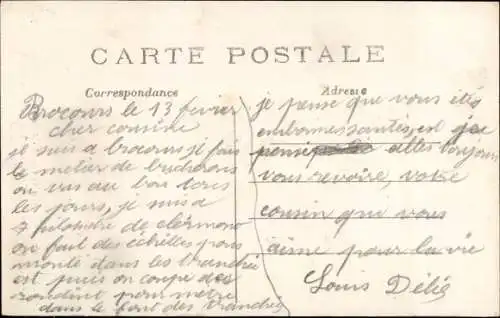 CARTE POSTALE
Correspondance
Adresse
Brocours le 13 fevrier
cher cousine
je suis a brocours je fais
le metier de bucherons
on vas au bois tous
les jours, je suis a
7 kilometre de clermons
on fait des echelles pour
monte dans les tranchée
est puis on coupe des
rondint pour metre
dans le font des tranchée
je pense que vous etes
en bonne santée, est que
pense allez toujours
vous revoire, votre
cousin qui vous
aime pour la vie
Louis Délié